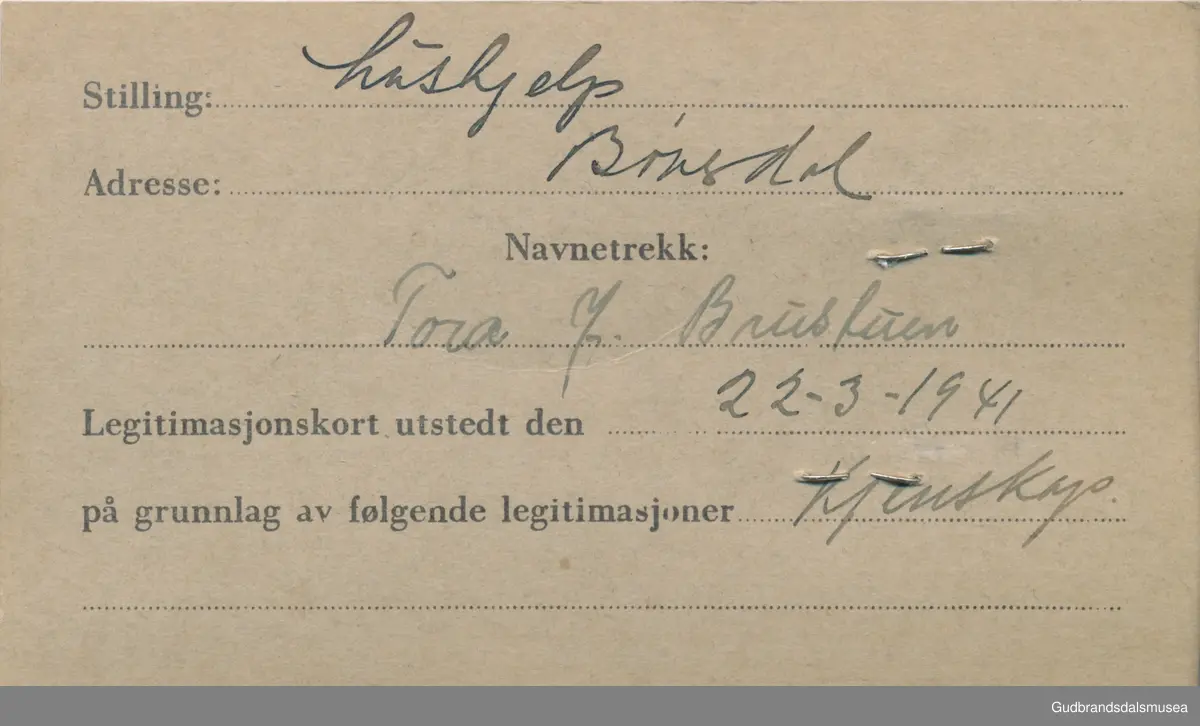 Stilling: hushjelp
Adresse: Bøverdal
Navnetrekk:
Tora J. Brustuen
Legitimasjonskort utstedt den 22-3-1941
på grunnlag av følgende legitimasjoner Kjenskap.
Gudbrandsdalsmusea